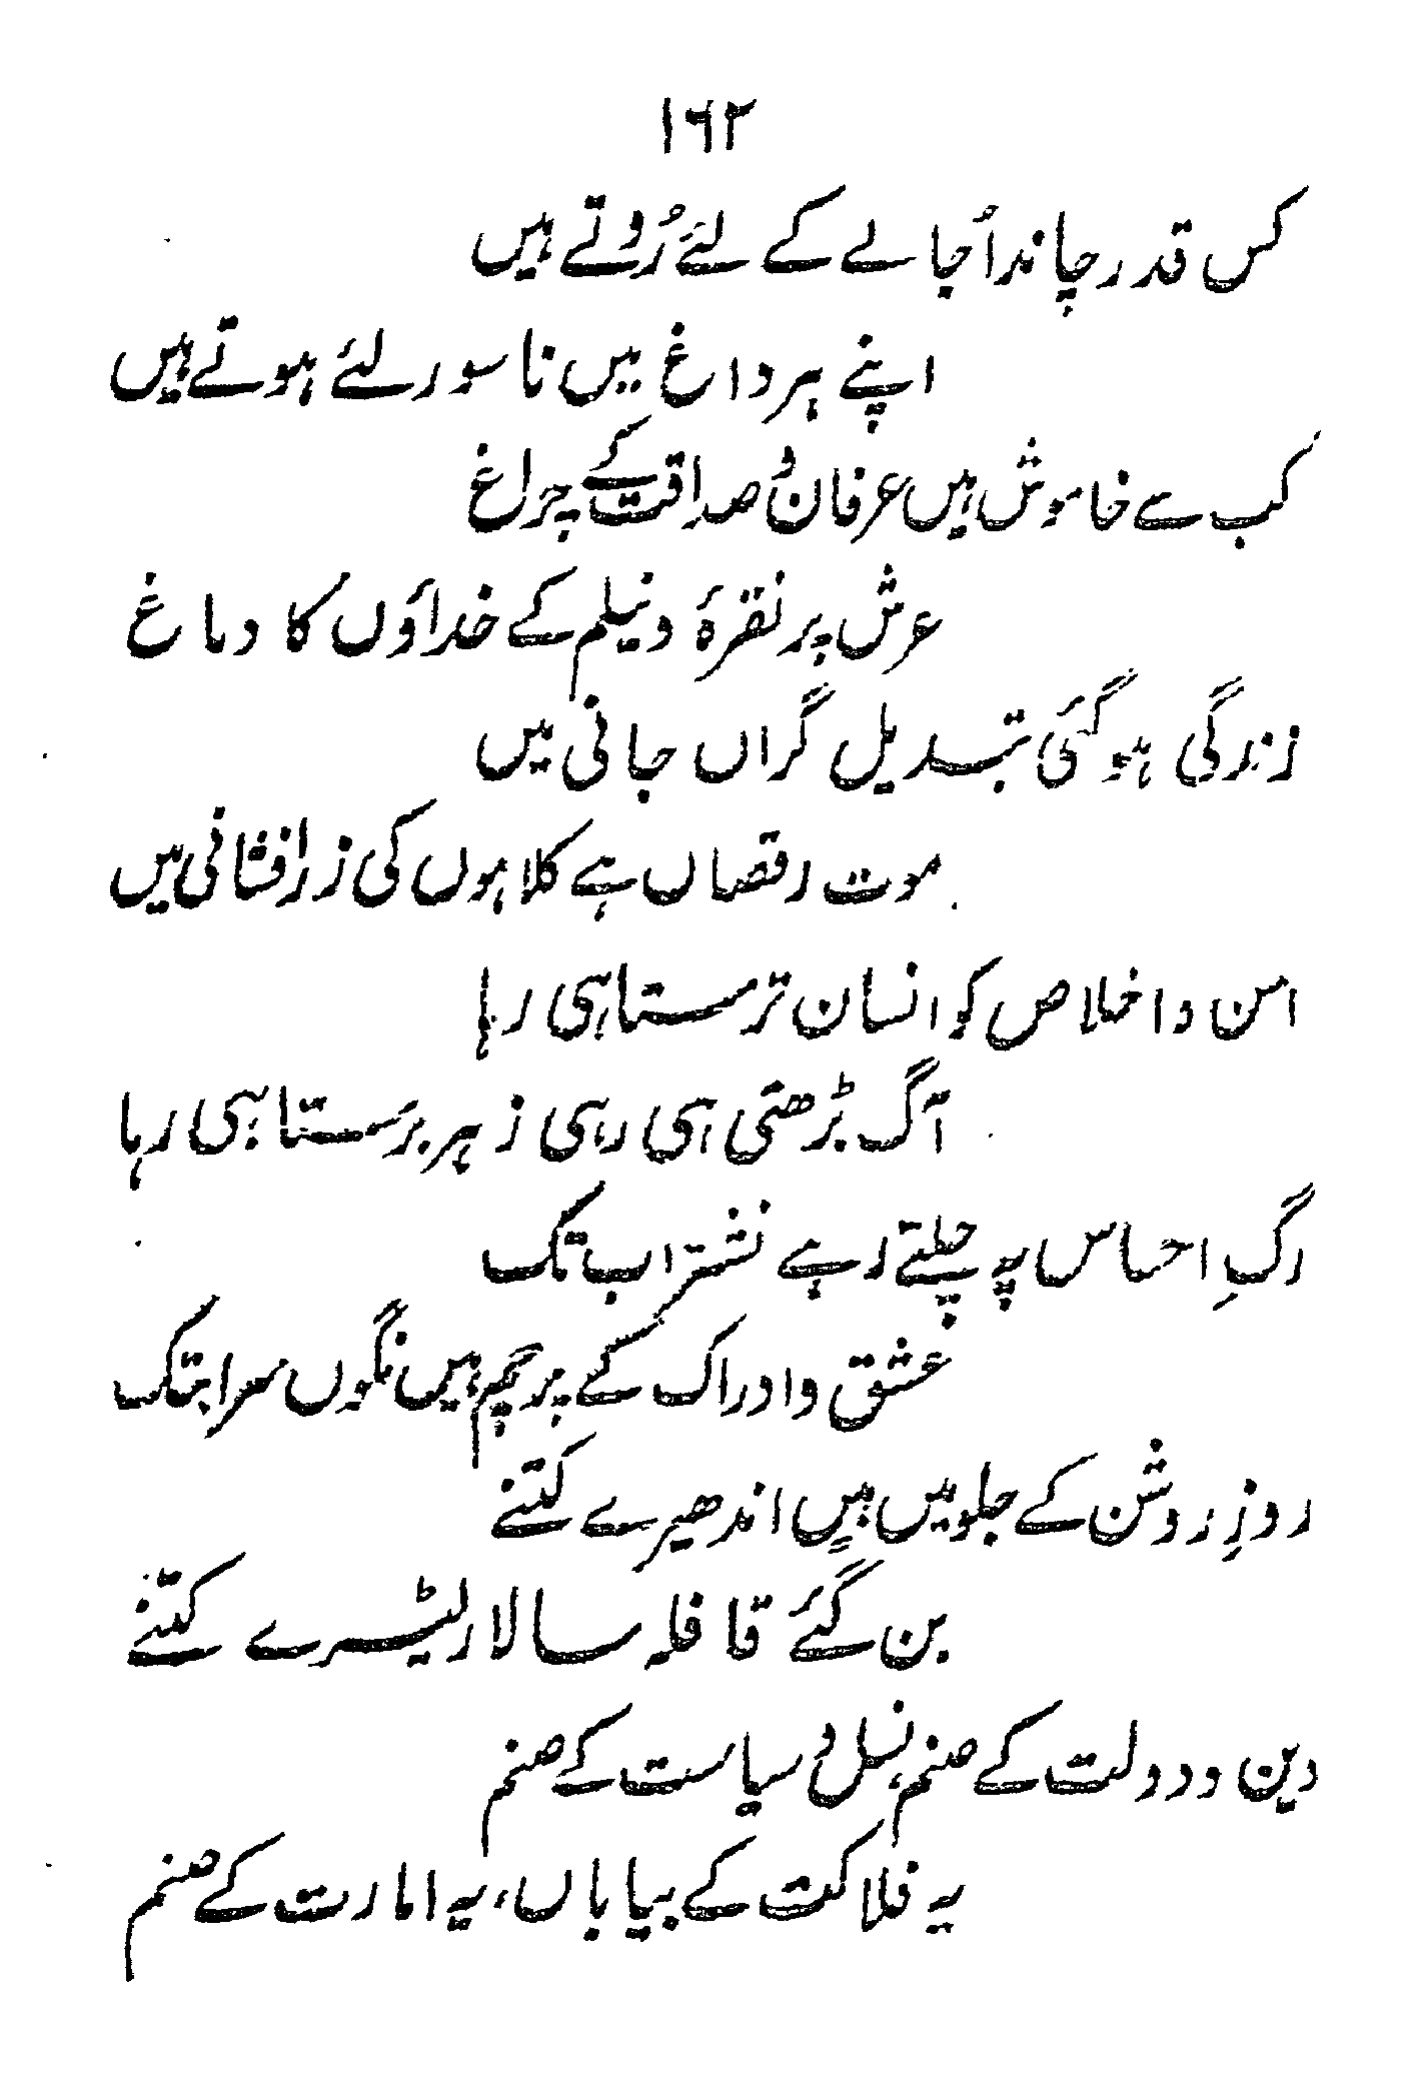 ۱۶۲
کس قدر چاند اُجالے کے لئے رُوتے ہیں
اپنے ہر داغ میں ناسور لئے ہوتے ہیں
کب سے خاموش ہیں عرفان و صداقت کے چراغ
عرش پر نقرۂ و نیلم کے خداؤں کا دماغ
زندگی ہو گئی تبدیل گراں جانی میں
موت رقصاں ہے کلاہوں کی زر افشانی میں
امن و اخلاص کو انسان ترستا ہی رہا
آگ بڑھتی ہی رہی زہر برستا ہی رہا
رگِ احساس پہ چلتے رہے نشتر اب تک
عشق و ادراک کے پرچم ہیں نگوں سر ابتک
روزِ روشن کے جلو میں ہیں اندھیرے کتنے
بن گئے قافلہ سالار لٹیرے کتنے
دین و دولت کے صنم، نسل و سیاست کے صنم
یہ فلاکت کے بیاباں، یہ امارت کے صنم